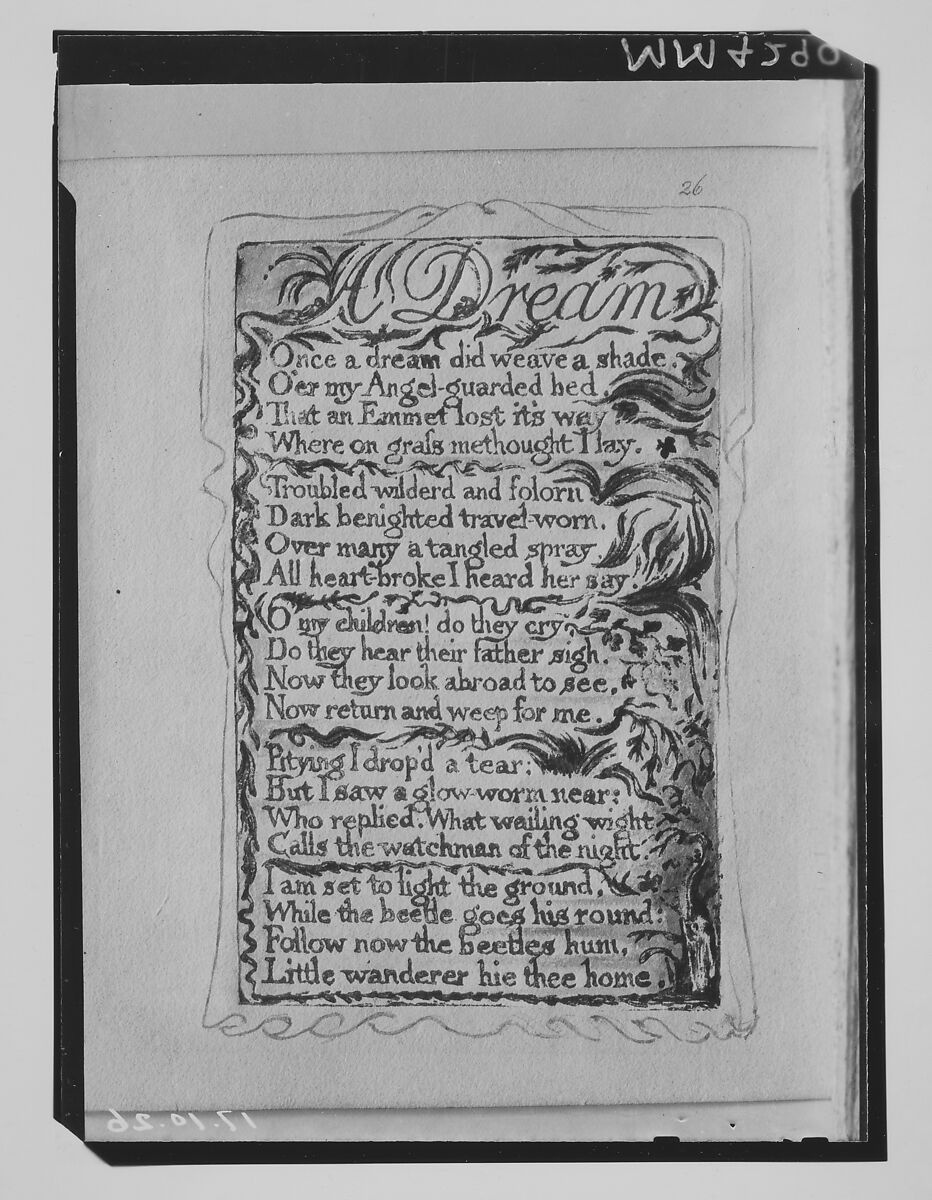 MM4290
26
A Dream
Once a dream did weave a shade.
O'er my Angel-guarded bed,
That an Emmet lost it's way
Where on graſs methought I lay.
Troubled wilderd and folorn
Dark benighted travel-worn,
Over many a tangled spray,
All heart-broke I heard her say.
O my children! do they cry,
Do they hear their father sigh.
Now they look abroad to see,
Now return and weep for me.
Pitying I drop'd a tear:
But I saw a glow-worm near:
Who replied. What wailing wight
Calls the watchman of the night.
I am set to light the ground,
While the beetle goes his round:
Follow now the beetles hum,
Little wanderer hie thee home.
17.10.26